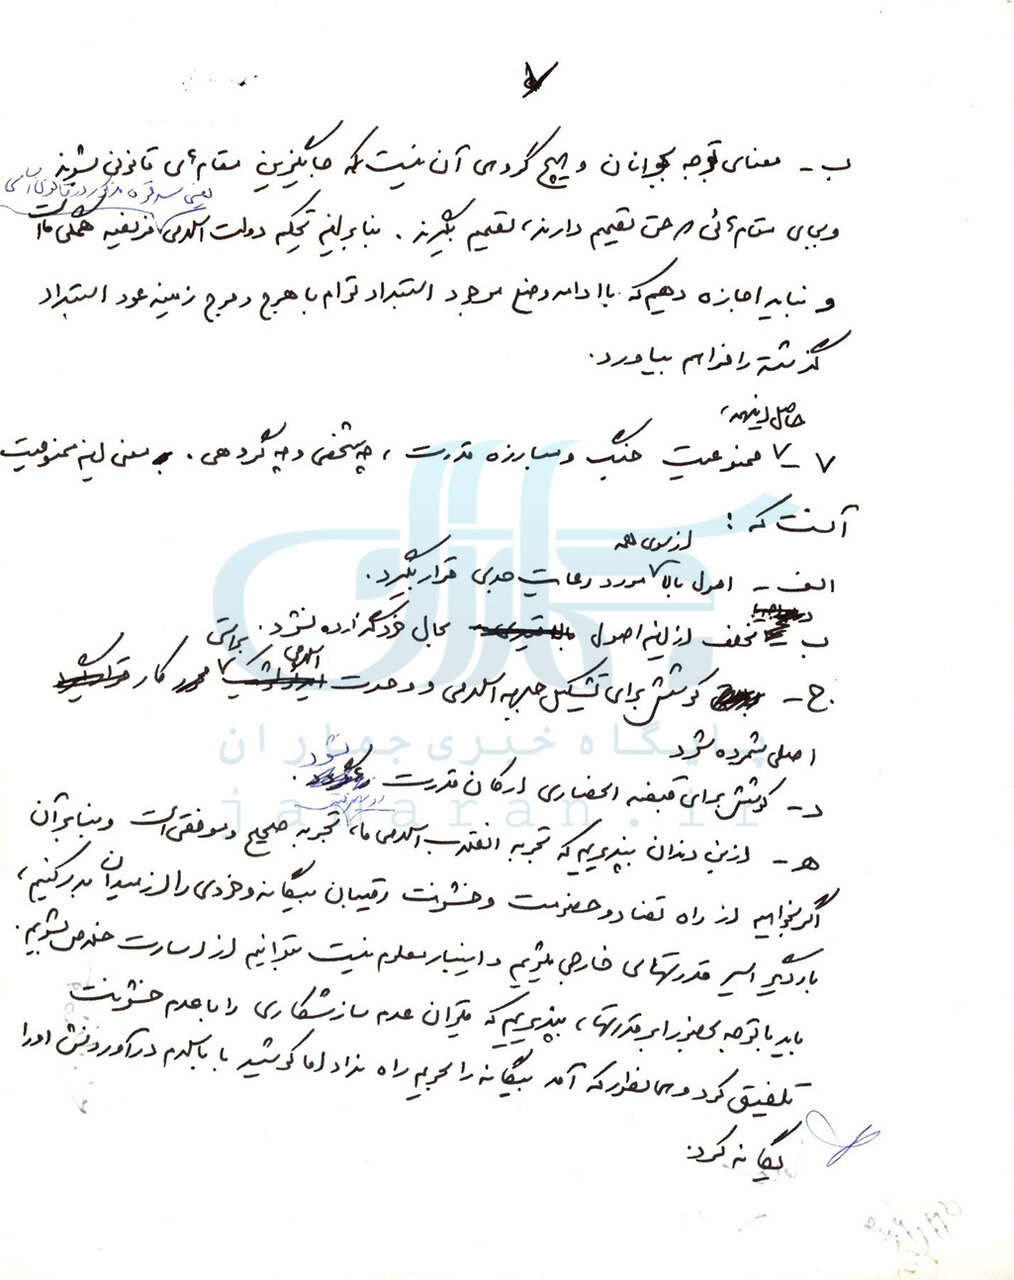 ۷
ب - معنای توجه بجوانان و هیچ گروهی آن نیست که جایگزین مقام‌های قانونی بشوند
یعنی سه قوه مذکور در قانون اساسی
و بجای مقام‌هائی که حق تصمیم دارند، تصمیم بگیرند. بنابراین تحکیم دولت اسلامی فریضه همگی ما است
و نباید اجازه دهیم که با ادامه وضع موجود استبداد توام با هرج و مرج زمینه عود استبداد
گذشته را فراهم بیاورد.
حاصل اینهمه،
۷ - ممنوعیت جنگ و مبارزه قدرت، چه شخصی و چه گروهی. معنی این ممنوعیت
آنست که:
از سوی همه
الف - اصول بالا مورد رعایت جدی قرار بگیرد.
ب - متخلف از این اصول بحال خود گذارده نشود.
براستی
اسلامی
ج - کوشش برای تشکیل جبهه اسلامی و وحدت کار
اصلی شمرده شود
نشود
د - کوشش برای قبضه انحصاری ارکان قدرت.
ه - از بن دندان بپذیریم که تجربه انقلاب اسلامی ما، تجربه صحیح و موفقی است و بنابرآن
اگر بخواهیم از راه تضاد و خصومت و خشونت رقیبان بیگانه و خودی را از میدان بدر کنیم،
بار دگر اسیر قدرتهای خارجی میشویم و اینبار معلوم نیست بتوانیم از اسارت خلاص بشویم.
باید با توجه بحضور ابرقدرتها، بپذیریم که میتوان عدم سازشکاری را با عدم خشونت
تلفیق کرد و همانطور که آمد بیگانه را بحریم راه نداد اما کوشید با باسلام درآوردنش او را
یگانه کرد.
پایگاه خبری جماران
jamaran.ir